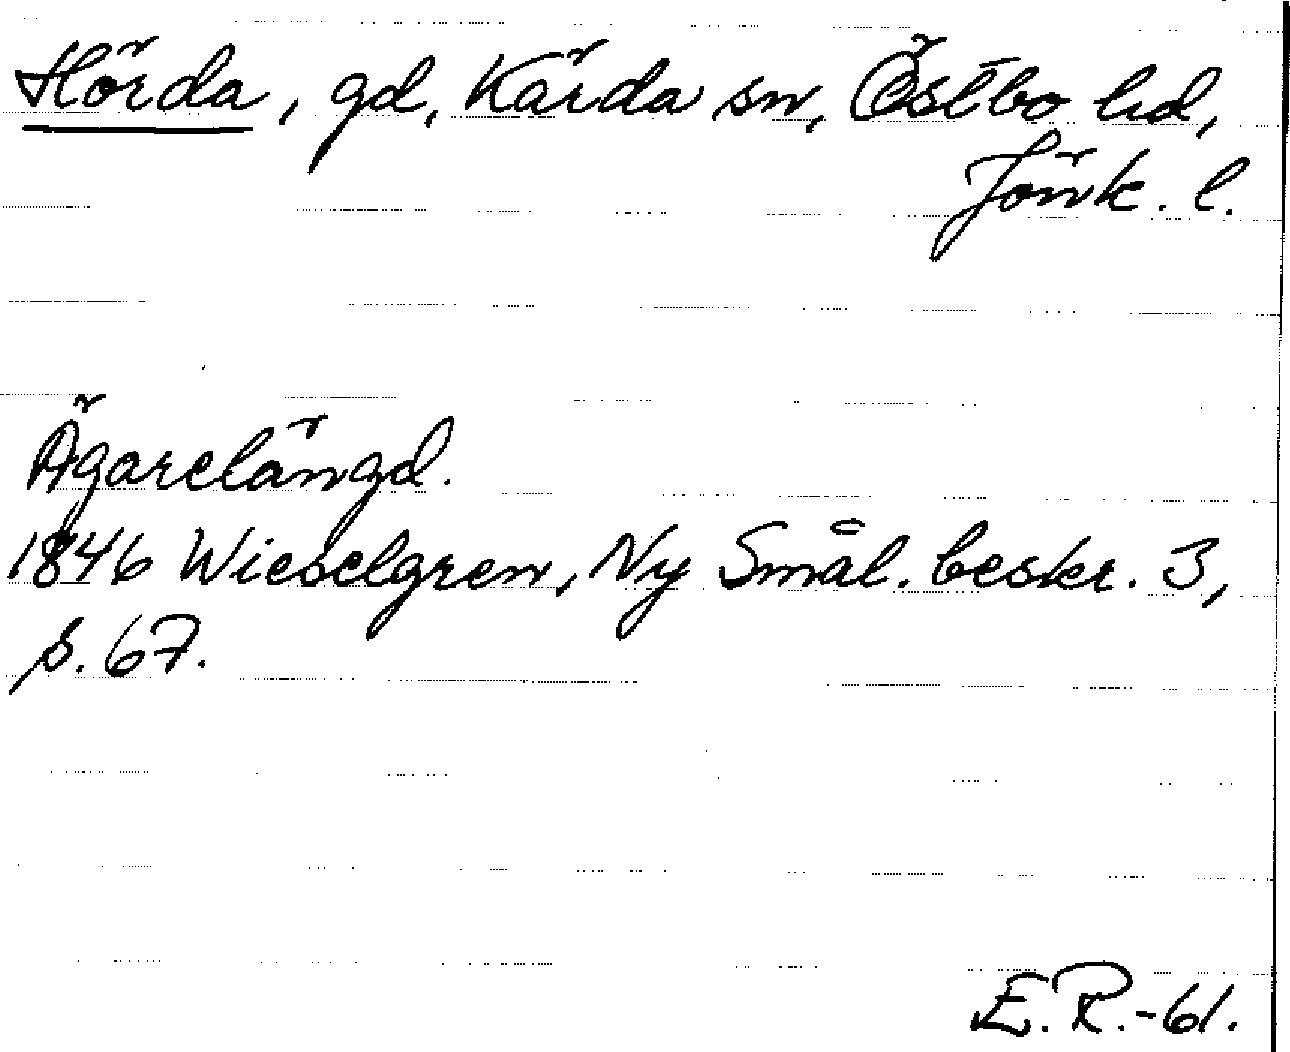 Hörda, gd, Kärda sn, Östbo hd,
Jönk. l.
Ägarelängd.
1846 Wieselgren, Ny Smål. beskr. 3,
s. 67.
E. R.-61.